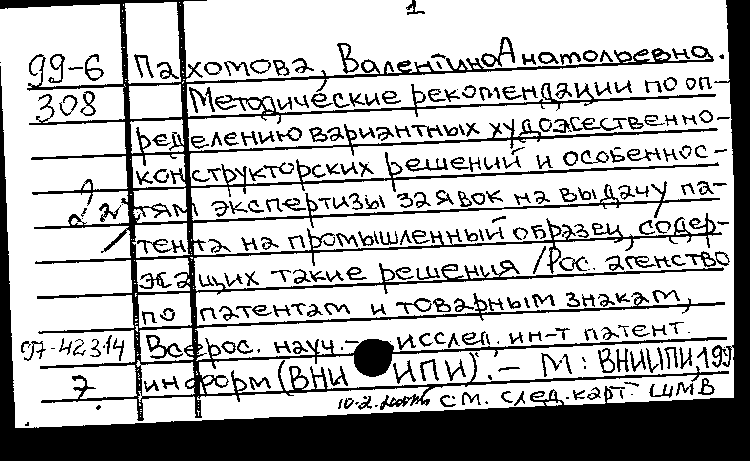 1
99-6 Пахомова, Валентина Анатольевна.
308 Методические рекомендации по оп-
ределению вариантных художественно-
конструкторских решений и особеннос-
тям экспертизы заявок на выдачу па-
тента на промышленный образец, содер-
жащих такие решения / Рос. агенство
по патентам и товарным знакам,
97-42314 Всерос. науч.- исслед. ин-т патент.
7. информ (ВНИИПИ). - М: ВНИИПИ, 199
см. след. карт. ШМВ